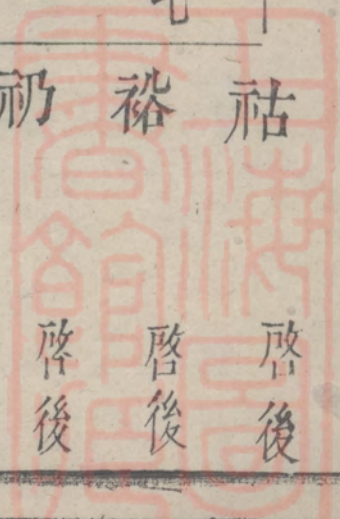 祜 啓後
裕 啓後
礽 啓後